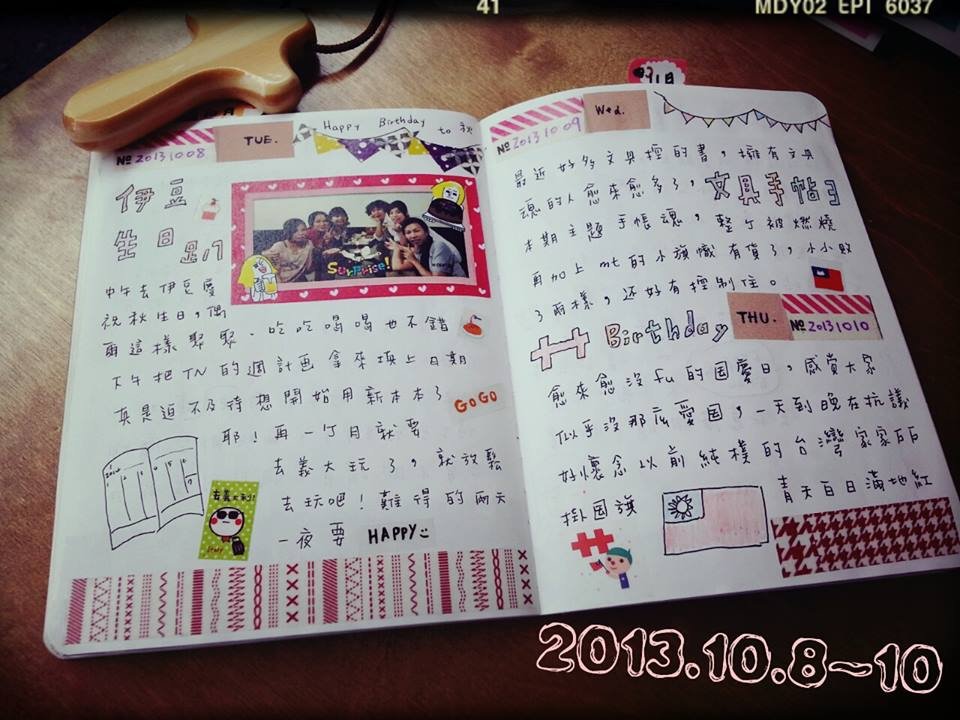 41
MDY02 EPI 6037
№20131008
TUE.
Happy Birthday to 秋
伊豆
生日趴
Surprise!
中午去伊豆慶
祝秋生日,偶
爾這樣聚聚、吃吃喝喝也不錯
下午把TN的週計画拿來填上日期
真是迫不及待想開始用新本本了
GOGO
耶!再一個月就要
去義大玩了,就放鬆
去玩吧!難得的兩天
一夜要 HAPPY
去義大利!
31日
№20131009
Wed.
最近好多文具控的書,擁有文具
魂的人愈來愈多了,文具手帖3
本期主題手帳魂,整个被燃燒
再加上mt的小旗幟有貨了,小小敗
了兩樣,还好有控制住。
THU.
№20131010
十十 Birthday
愈來愈沒fu的国慶日,感覺大家
似乎沒那麼愛国,一天到晚在抗議
好懷念以前純樸的台灣家家戶戶
掛国旗
青天白日滿地紅
2013.10.8~10